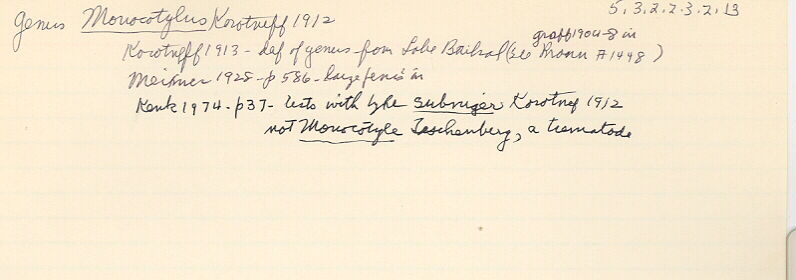 5.3.2.2.3.2.13
Genus Monocotylus Korotneff 1912
graff 1904-8 in
Korotneff 1913 - def of genus from Lake Baikal (see Bronn # 1448)
Meixner 1928 - p 586 - large penis in
Kenk 1974 - p37 - lists with type subniger Korotneff 1912
not Monocotyle Taschenberg, a trematode